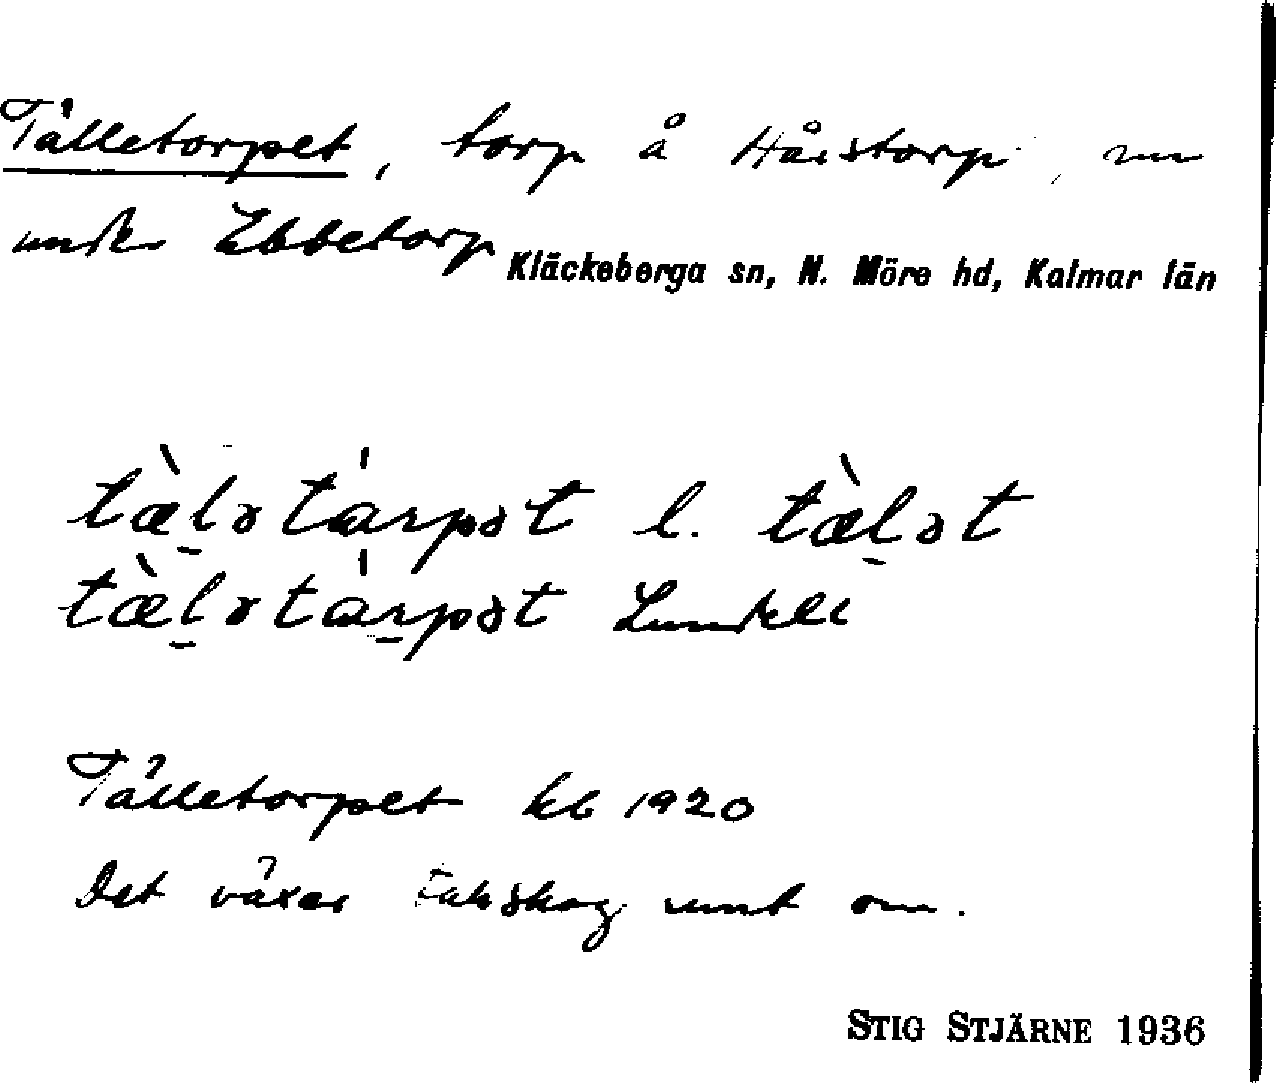 Tålletorpet, torp å Håistorp, nu
under Ebbetorp Kläckeberga sn, N. Möre hd, Kalmar län
tæ̀ḷətárpət l. tæ̀ḷət
tæ̀ḷətárpət Lundell
Tålletorpet kb 1920
Det växer tallskog runt om.
STIG STJÄRNE 1936